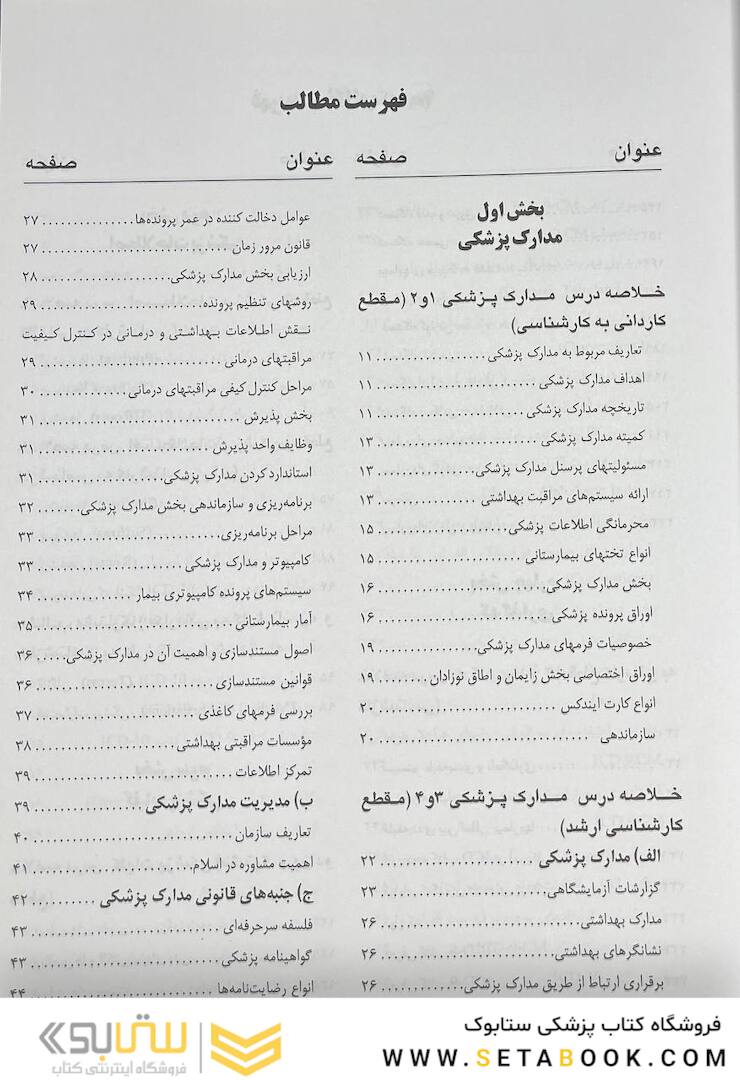 فهرست مطالب
عنوان صفحه
بخش اول
مدارک پزشکی
خلاصه درس مدارک پزشکی ۱و۲ (مقطع
کاردانی به کارشناسی)
تعاریف مربوط به مدارک پزشکی ................ ۱۱
اهداف مدارک پزشکی ........................ ۱۱
تاریخچه مدارک پزشکی ...................... ۱۱
کمیته مدارک پزشکی ........................ ۱۳
مسئولیتهای پرسنل مدارک پزشکی................ ۱۳
ارائه سیستم‌های مراقبت بهداشتی ............... ۱۳
محرمانگی اطلاعات پزشکی.................... ۱۵
انواع تختهای بیمارستانی ...................... ۱۵
بخش مدارک پزشکی......................... ۱۶
اوراق پرونده پزشکی ......................... ۱۶
خصوصیات فرمهای مدارک پزشکی................ ۱۹
اوراق اختصاصی بخش زایمان و اطاق نوزادان........ ۱۹
انواع کارت ایندکس ......................... ۲۰
سازماندهی ............................... ۲۰
خلاصه درس مدارک پزشکی ۳و۴ (مقطع
کارشناسی ارشد)
الف) مدارک پزشکی ........................ ۲۲
گزارشات آزمایشگاهی....................... ۲۳
مدارک بهداشتی ........................... ۲۶
نشانگرهای بهداشتی......................... ۲۶
برقراری ارتباط از طریق مدارک پزشکی............ ۲۶
عنوان صفحه
عوامل دخالت کننده در عمر پرونده‌ها.............. ۲۷
قانون مرور زمان ............................ ۲۷
ارزیابی بخش مدارک پزشکی................... ۲۸
روشهای تنظیم پرونده........................ ۲۹
نقش اطلاعات بهداشتی و درمانی در کنترل کیفیت
مراقبتهای درمانی .......................... ۲۹
مراحل کنترل کیفی مراقبتهای درمانی............. ۳۰
بخش پذیرش ............................. ۳۱
وظایف واحد پذیرش ........................ ۳۱
استاندارد کردن مدارک پزشکی.................. ۳۱
برنامه‌ریزی و سازماندهی بخش مدارک پزشکی....... ۳۲
مراحل برنامه‌ریزی.......................... ۳۳
کامپیوتر و مدارک پزشکی ..................... ۳۳
سیستم‌های پرونده کامپیوتری بیمار .............. ۳۴
آمار بیمارستانی ............................ ۳۵
اصول مستندسازی و اهمیت آن در مدارک پزشکی..... ۳۶
قوانین مستندسازی .......................... ۳۶
بررسی فرمهای کاغذی ....................... ۳۷
مؤسسات مراقبتی بهداشتی .................... ۳۸
تمرکز اطلاعات ............................ ۳۹
ب) مدیریت مدارک پزشکی ................... ۳۹
تعاریف سازمان ............................ ۴۰
اهمیت مشاوره در اسلام...................... ۴۱
ج) جنبه‌های قانونی مدارک پزشکی .......... ۴۲
فلسفه سرحرفه‌ای .......................... ۴۳
گواهینامه پزشکی........................... ۴۳
انواع رضایت‌نامه‌ها.......................... ۴۴
فروشگاه کتاب پزشکی ستابوک
WWW.SETABOOK.COM
ستابوک
فروشگاه اینترنتی کتاب